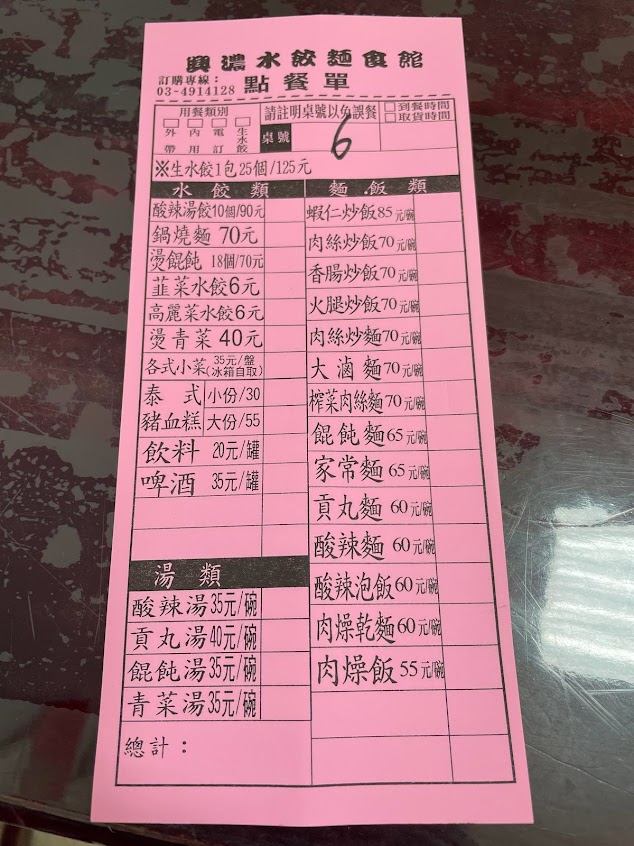 興濃水餃麵食館
訂購專線：
03-4914128
點餐單
用餐類別
外帶
內用
電訂
生水餃
請註明桌號以免誤餐
桌號
6
到餐時間
取貨時間
※生水餃1包25個/125元
水餃類
酸辣湯餃10個/90元
鍋燒麵 70元
燙餛飩 18個/70元
韭菜水餃6元
高麗菜水餃6元
燙青菜 40元
各式小菜 35元/盤(冰箱自取)
泰式豬血糕
小份/30
大份/55
飲料 20元/罐
啤酒 35元/罐
湯類
酸辣湯35元/碗
貢丸湯40元/碗
餛飩湯35元/碗
青菜湯35元/碗
總計：
麵飯類
蝦仁炒飯85元/碗
肉絲炒飯70元/碗
香腸炒飯70元/碗
火腿炒飯70元/碗
肉絲炒麵70元/碗
大滷麵70元/碗
榨菜肉絲麵70元/碗
餛飩麵65元/碗
家常麵65元/碗
貢丸麵60元/碗
酸辣麵60元/碗
酸辣泡飯60元/碗
肉燥乾麵60元/碗
肉燥飯55元/碗